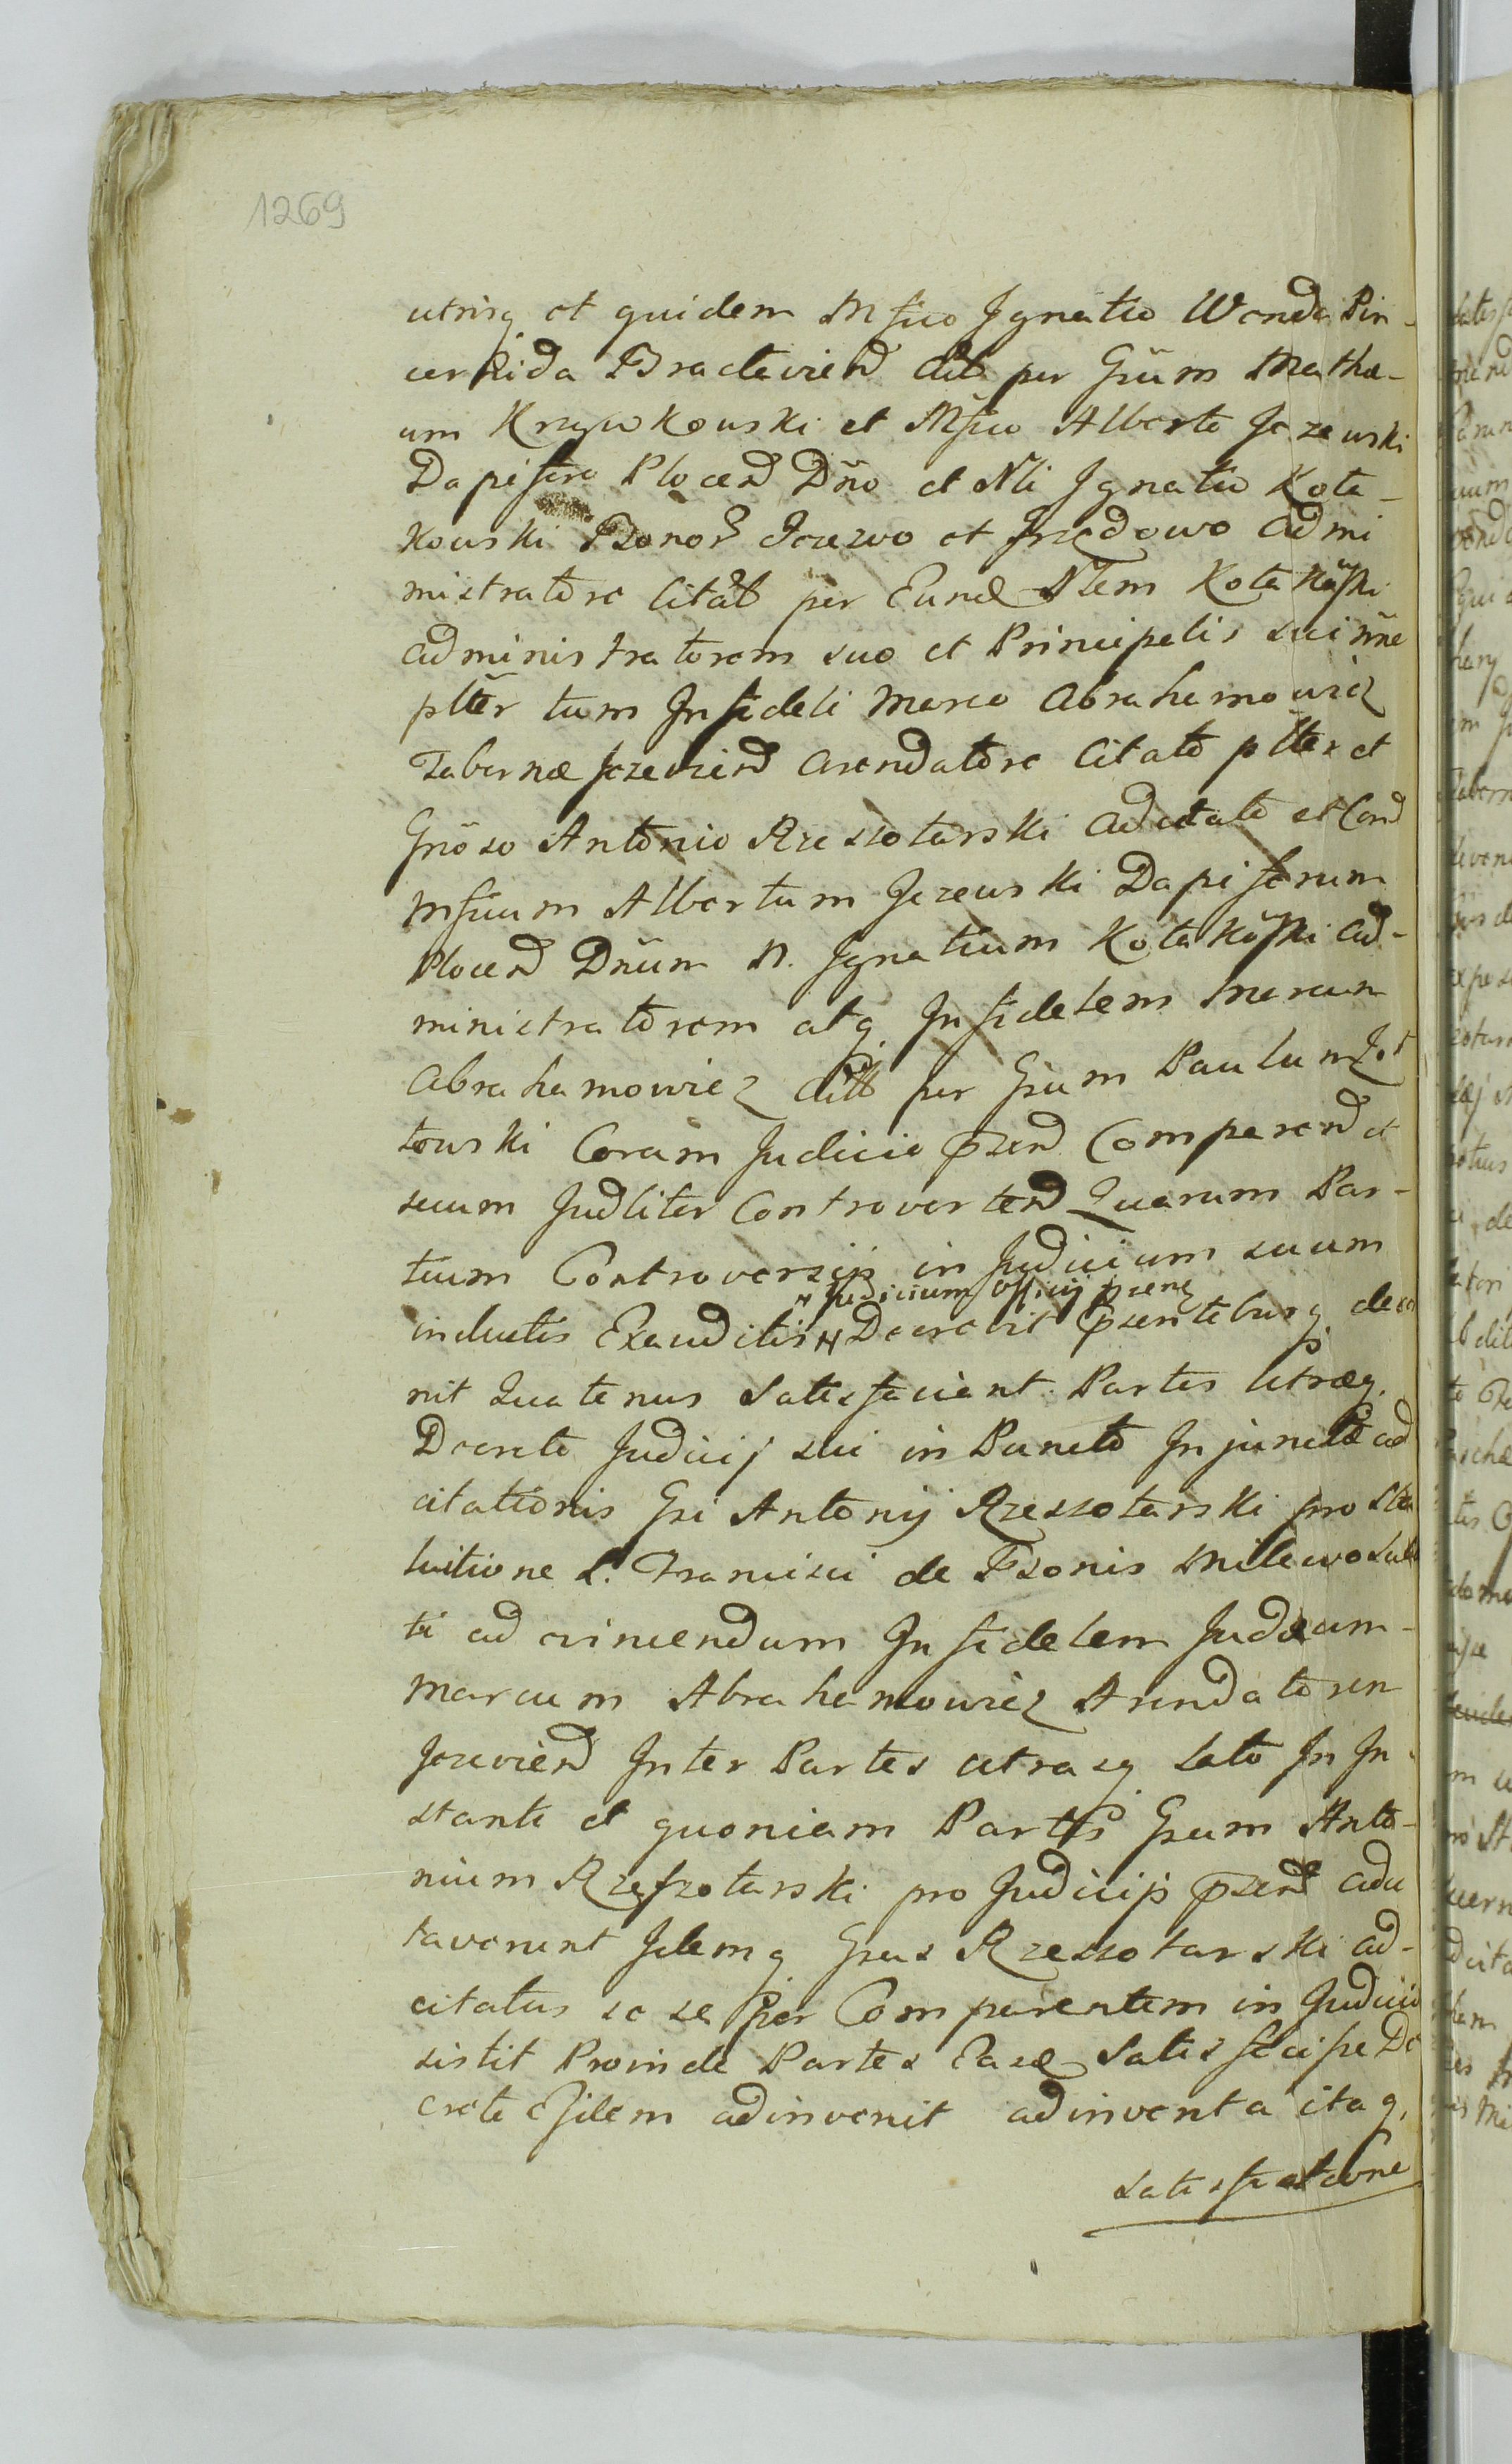 1269
utrisq et quidem Mfico Ignatio Wenda Pin-
cernida Braclavien citt per Gsum Mathæ-
um Krzywkowski et Mfico Alberto Jezewski
Dapifero Plocen Dño et Nli Ignatio Kota-
kowski Bonor Jezewo et Srzedowo admi
nistratore Citat per Eund Nlem Kotakoski
administratorem suo et Principalis sui ñne
pltēr tum Infideli Marco Abrahamowicz
Tabernæ Jezevien arendatore Citato pltēr et
Gnōso Antonio Rzeszotarski adcitato et Cond
Mficum Albertum Jezewski Dapiferum
Plocen Dñum N. Ignatium Kotakoski ad-
ministratorem atq Infidelem Marcum
Abrahamowicz citt per Gsum Paulum
towski Coram Judicio pzen Comparend et
secum Judliter Controvertend Quarum Par-
tium Controversijs in Judicium suum
N Judicium Officij pzens
inductis Exauditis N Decrevit pzentibusq decer
nit Quatenus Satisfaciant Partes Utræq
Decreto Judicij sui in Puncto Injunctæ ad
citationis Gsi Antonij Rzeszotarski pro sta
tuitione L. Francisci de Bonis Milewo Subdi
ti ad evincendum Infidelem Judæum
Marcum Abrahamowicz Arendatorem
Jezevien Inter Partes utrasq lato In In
stanti et quoniam Partes Gsum Anto-
nium Rzeszotarski pro Judicijs pzen adci
taverunt Idemq Gsus Rzeszotarski ad-
citatus se se per Comparentem in Judicio
sistit Proinde Partes Easd Satisfecisse De
creto Ejdem adinvenit adinventa itaq,
satisfactione